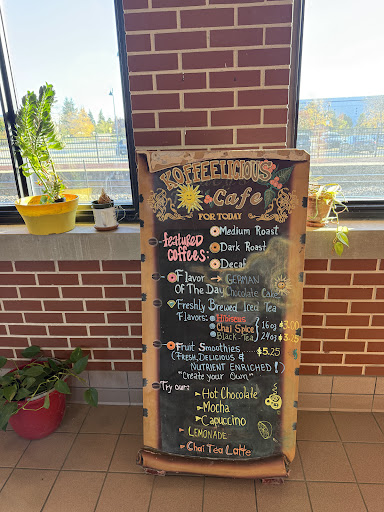 KOFFEELICIOUS
Cafe
FOR TODAY
featured
coffees:
Medium Roast
Dark Roast
Decaf
Flavor → GERMAN
Of The Day Chocolate Cake
Freshly Brewed Iced Tea
Flavors: Hibiscus
Chai Spice 16 oz $3.00
Black Tea 24 oz $3.75
Fruit Smoothies .... $5.25
(FRESH, DELICIOUS &
NUTRIENT ENRICHED!)
"Create your Own"
Try our:
Hot Chocolate
Mocha
Capuccino
LEMONADE
Chai Tea Latte